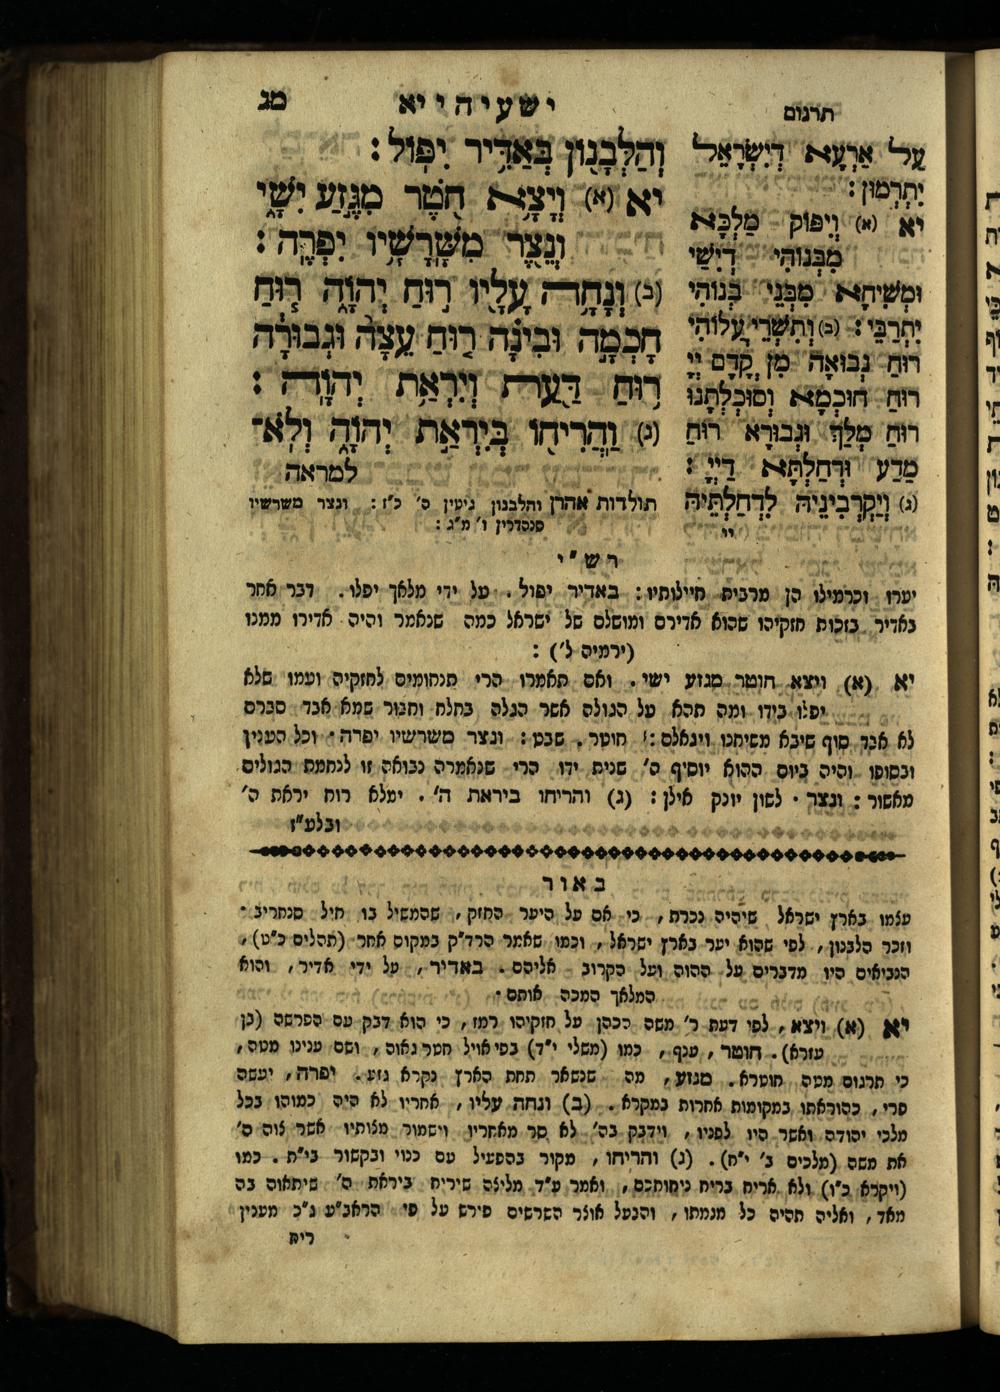 תרגום
ישעיה י יא
מג
וְהַלְּבָנוֹן בְּאַדִּיר יִפּוֹל :
יא (א) וְיָצָא חֹטֶר מִגֶּזַע יִשָׁי
וְנֵצֶר מִשָּׁרָשָׁיו יִפְרֶה :
(ב) וְנָחָה עָלָיו רוּחַ יְהוָֹה רוּחַ
חָכְמָה וּבִינָה רוּחַ עֵצָה וּגְבוּרָה
רוּחַ דַּעַת וְיִרְאַת יְהוָֹה :
(ג) וַהֲרִיחוֹ בְּיִרְאַת יְהוָֹה וְלֹא־
למראה
תולדות אהרן והלבנון גיטין ס׳ כ״ז : ונצר משרשיו
סנהדרין ו׳ מ״ג :
עַל אַרְעָא דְיִשְׂרָאֵל
יִתְרְמוּן :
יא (א) וְיִפּוֹק מַלְכָּא
מִבְּנוֹהִי דְיִשַׁי
וּמְשִׁיחָא מִבְּנֵי בְנוֹהִי
יִתְרַבֵּי : (ב) וְתִשְׁרֵי עֲלוֹהִי
רוּחַ נְבוּאָה מִן קֳדָם יְיָ
רוּחַ חוּכְמָא וְסוּכְלְתָנוּ
רוּחַ מְלַךְ וּגְבוּרָא רוּחַ
מַדַע וּדְחַלְתָּא דַיְיָ :
(ג) וִיקָרְבִינֵיהּ לִדְחַלְתֵּיהּ
יי
רש״י
יערו וכרמילו הן מרבית חיילותיו : באדיר יפול . על ידי מלאך יפלו . דבר אחר
באדיר בזכות חזקיהו שהוא אדירם ומושלם של ישראל כמה שנאמר והיה אדירו ממנו
(ירמיה ל׳) :
יא (א) ויצא חוטר מגזע ישי . ואם תאמרו הרי תנחומים לחזקיה ועמו שלא
יפלו בידו ומה תהא על הגולה אשר הגלה בחלח וחבור שמא אבד סברם
לא אבד סוף שיבא משיחנו ויגאלם : חוטר . שבט : ונצר משרשיו יפרה · וכל הענין
ובסופו והיה ביום ההוא יוסיף ה׳ שנית ידו הרי שנאמרה נבואה זו לנחמת הגולים
מאשור : ונצר · לשון יונק אילן : (ג) והריחו ביראת ה׳ . ימלא רוח יראת ה׳
ובלע״ז
באור
עצמו בארץ ישראל שיהיה נכרת , כי אם על היער החזק , שהמשיל בו חיל סנחריב ·
וזכר הלבנון , לפי שהוא יער בארץ ישראל , וכמו שאמר הרד״ק במקום אחר (תהלים כ״ט) ,
הנביאים היו מדברים על ההוה ועל הקרוב אליהם . באדיר , על ידי אדיר , והוא
המלאך המכה אותם ·
יא (א) ויצא , לפי דעת ר׳ משה הכהן על חזקיהו רמז , כי הוא דבק עם הפרשה (בן
עזרא) . חוטר , ענף , כמו (משלי י״ד) בפי אויל חטר גאוה , ושם ענינו מטה ,
כי תרגום מטה חוטרא . מגזע , מה שנשאר תחת הארץ נקרא גזע . יפרה , יעשה
פרי , כהוראתו במקומות אחרות במקרא . (ב) ונחה עליו , אחריו לא היה כמוהו בכל
מלכי יהודה ואשר היו לפניו , וידבק בה׳ לא סר מאחריו וישמור מצותיו אשר צוה ה׳
את משה (מלכים ב׳ י״ח) . (ג) והריחו , מקור בהפעיל עם כנוי ובקשור בי״ת . כמו
(ויקרא כ״ו) ולא אריח בריח ניחוחכם , ואמר ע״ד מליצה שיריח ביראת ה׳ שיתאוה בה
מאד , ואליה תהיה כל מגמתו , והבעל אוצר השרשים פירש על פי הראב״ע ג״כ מענין
ריח